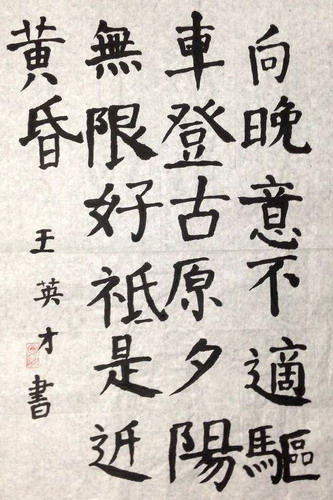 向晚意不適驅
車登古原夕陽
無限好祗是近
黃昏
王英才書